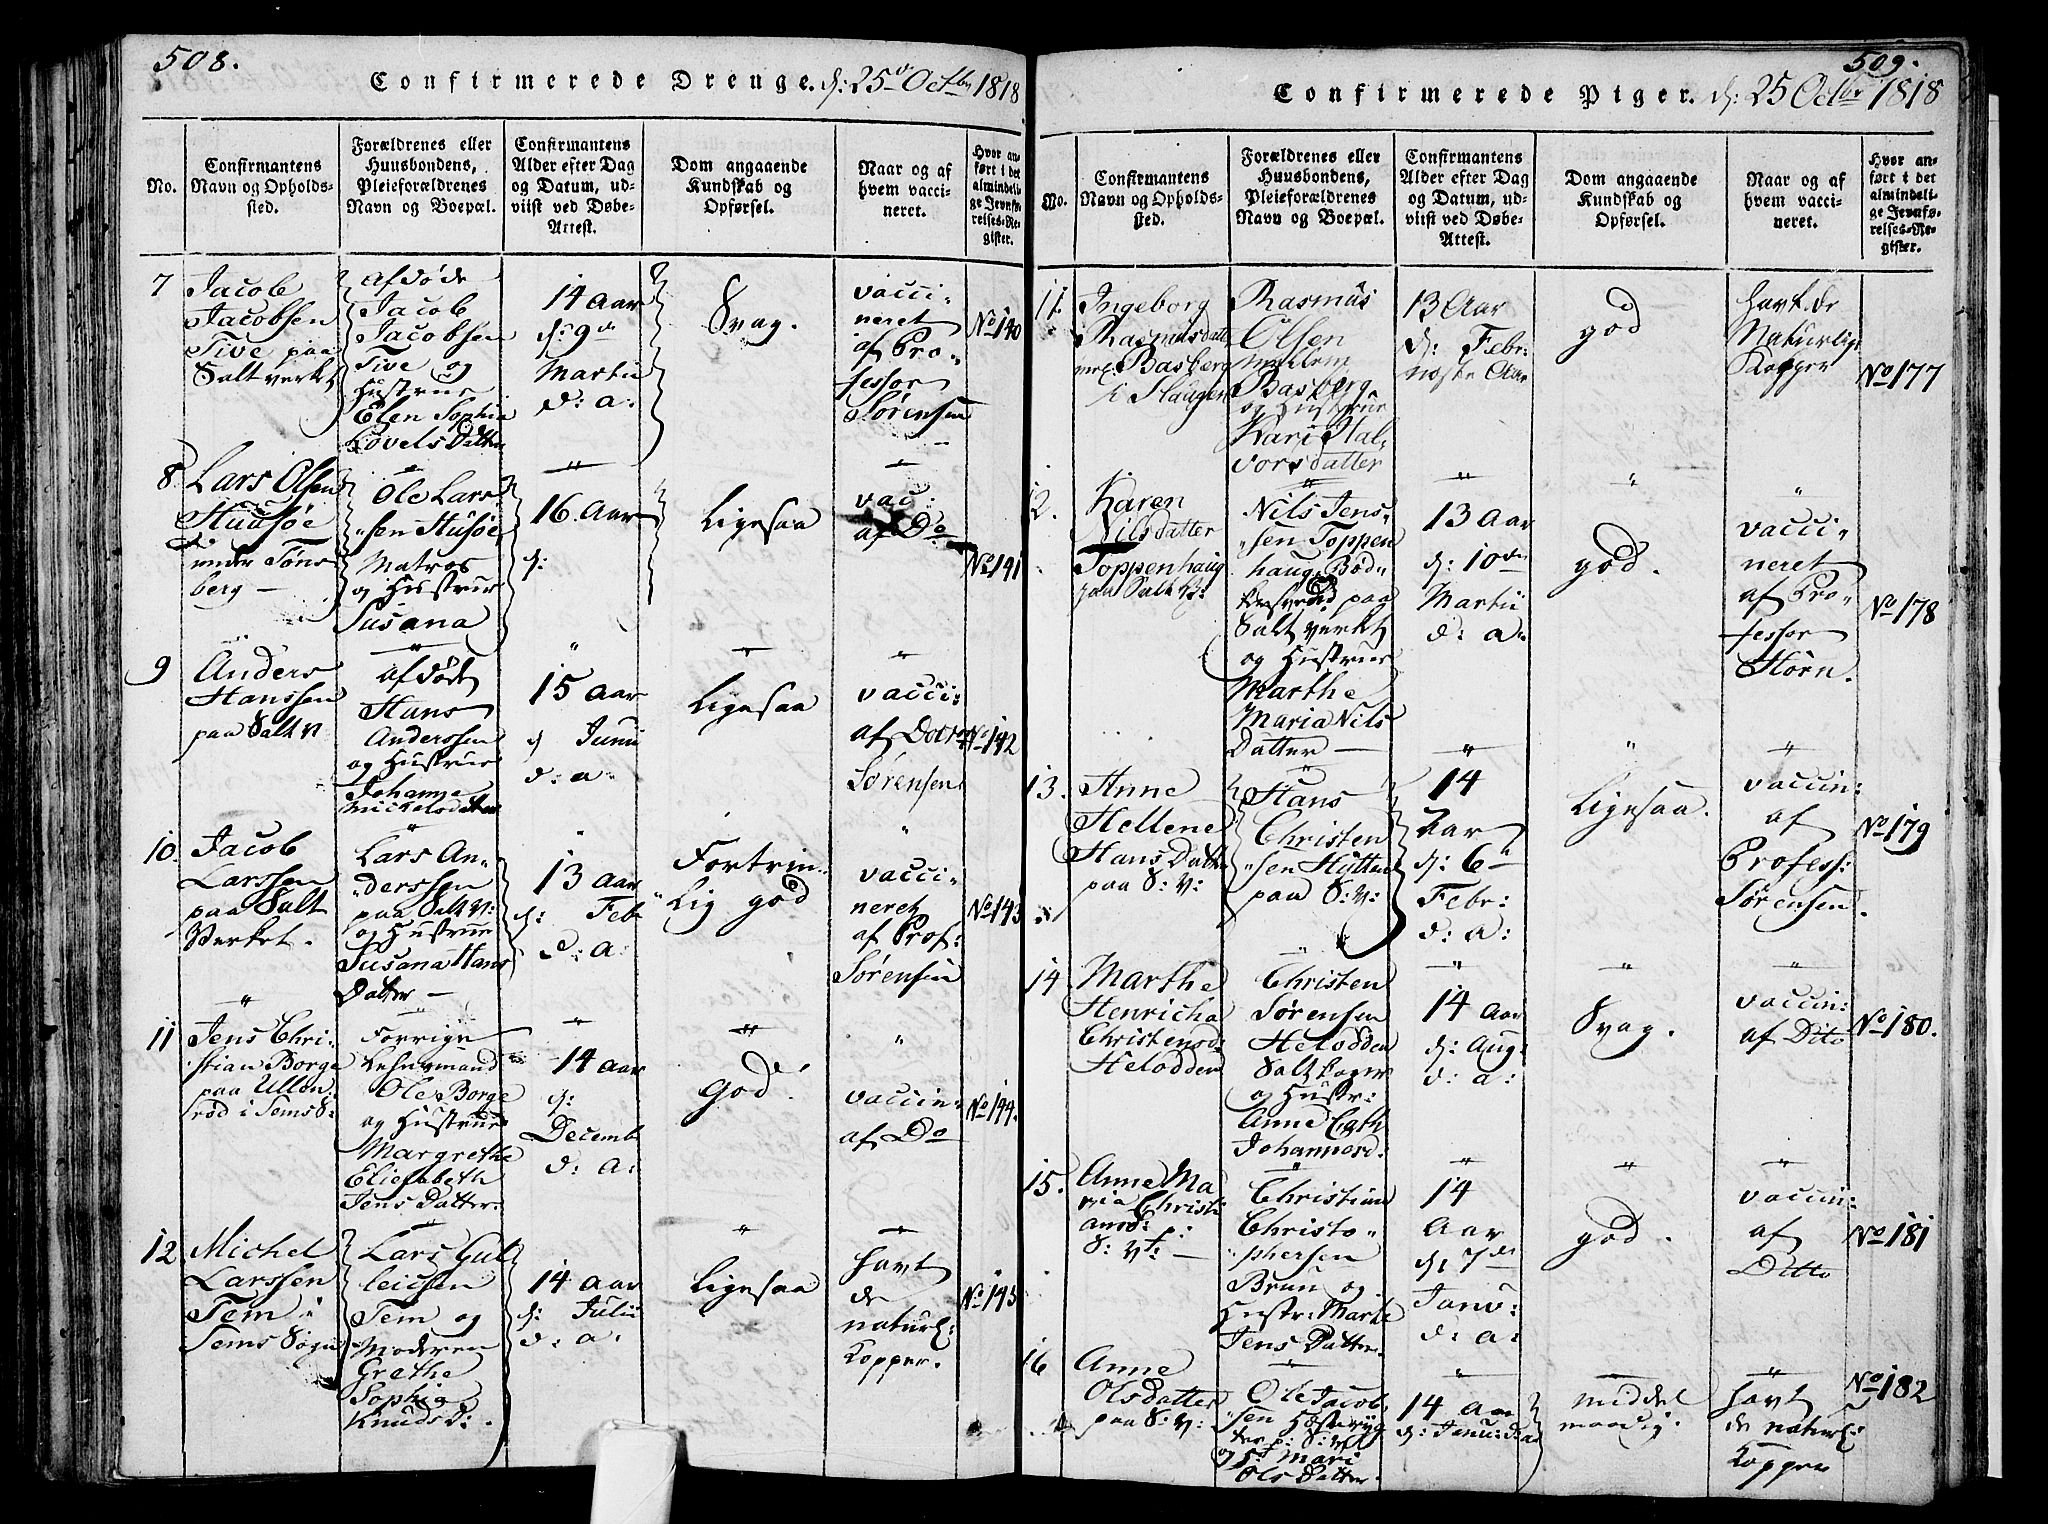 508.
Confirmerede Drenge. d: 25de Octbr 1818
No.
Confirmantens
Navn og Opholds-
sted.
Forældrenes eller
Huusbondens,
Pleieforældrenes
Navn og Boepæl.
Confirmantens
Alder efter Dag
og Datum, ud-
viist ved Døbe-
Attest.
Dom angaaende
Kundskab og
Opførsel.
Naar og af
hvem vacci-
neret.
Hvor an-
ført i det
almindeli-
ge Jevnfø-
relses-Re-
gister.
7
Jacob
Jacobsen
Tive paa
Saltverket
afdøde
Jacob
Jacobsen
Tive og
Hustrue
Elen Sophia
Lovels Datter
14 Aar
d: 9de
Martii
d: a:
Svag.
vacci-
neret
af Pro-
fessor
Sørensen
No 140
8.
Lars Olsen
Huusøe
under Tøns
berg
Ole Lars
"sen Husøe
Matros
og Hustrue
Susana
16. Aar
d:
Ligesaa
vac:
af Do
No 141
9
Anders
Hanssen
paa Salt V
afdøde
Hans
Anderssen
og Hustrue
Johanne
Mickelsdatter
15 Aar
d Junii
d: a:
Ligesaa
vacci:
af
Sørensen
No 142
10.
Jacob
Larssen
paa Salt
Verket.
Lars An-
"derssen
paa Salt V:
og Hustrue
Susana Hans
Datter
13 Aar
d: Febr
d: a:
Fortrin-
lig god
vacci-
neret
af Prof:
Sørensen
No 143
11
Jens Chri-
stian Borge
paa Ullen
rød i Sems S:
Forrige
Lehnsmand
Ole Borge
og Hustrue
Margrethe
Eliesabeth
Jens Datter.
14 Aar
d:
Decemb
d: a:
god.
vaccin-
af Do
No 144.
12
Michel
Larssen
Tem i
Sems Sogn
Lars Gul
leicsen
Tem og
Moderen
Grethe
Sophia
Knuds D:
14 Aar
d: Julii
d: a:
Ligesaa
havt
de
naturl:
Kopper.
No 145
509.
Confirmerede Piger. d: 25 Octbr 1818
No.
Confirmantens
Navn og Opholds-
sted.
Forældrenes eller
Huusbondens,
Pleieforældrenes
Navn og Boepæl.
Confirmantens
Alder efter Dag
og Datum, ud-
viist ved Døbe-
Attest.
Dom angaaende
Kundskab og
Opførsel.
Naar og af
hvem vacci-
neret.
Hvor an-
ført i det
almindeli-
ge Jevnfø-
relses-Re-
gister.
11.
Ingeborg
Rasmusdatt
Basberg
i Haugen
Rasmus
Olsen
mellem
Basberg
og Hustrue
Kari Hal-
vorsdatter
13 Aar
d: Febr:
næste Aar
god
havt de
Naturlige
Kopper
No 177
12.
Karen
Nilsdatter
Toppenhaug
paa Salt V:
Nils Jens-
"sen Toppen
haug, Bød-
paa
Salt verket
og Hustrue
Marthe
Maria Nils
Datter
13 Aar
d: 10de
Martii
d: a:
god.
vacci-
neret
af Pro-
fessor
Hørn.
No 178
13.
Anne
Hellene
Hans Datter
paa S: V:
Hans
Christen
"sen Hytten
paa S: V:
14
Aar
d: 6te
Febr:
d: a:
Ligesaa.
vaccin:
af
Profess:
Sørensen.
No 179
14
Marthe
Henricha
Christensd:
Helodden
Christen
Sørensen
Helodden
Salt
og Hustr:
Anne Cath
Johannesd.
14 Aar
d: Aug:
d: a:
Svag.
vaccin:
af Dito
No 180.
15.
Anne Ma
ria Christi
ansd: p:
S: V:
Christian
Christo-
"phersen
Brun og
Hustr: Marte
Jens Datter.
14
Aar
d, 7de
Janv:
d: a:
god.
vaccin:
af
Ditto
No 181
16
Anne
Olsdatter
paa S: V:
Ole Jacob
"sen
p: S: V
og Mari
Ols Datter.
14 Aar
d: Janu: d: a:
middel
maadig.
havt
de naturl:
Kopper
No 182